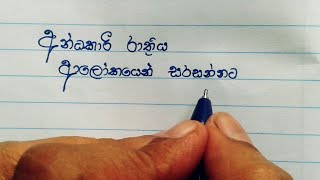 අන්ධකාරී රාත්‍රිය
ආලෝකයෙන් සරසන්නට